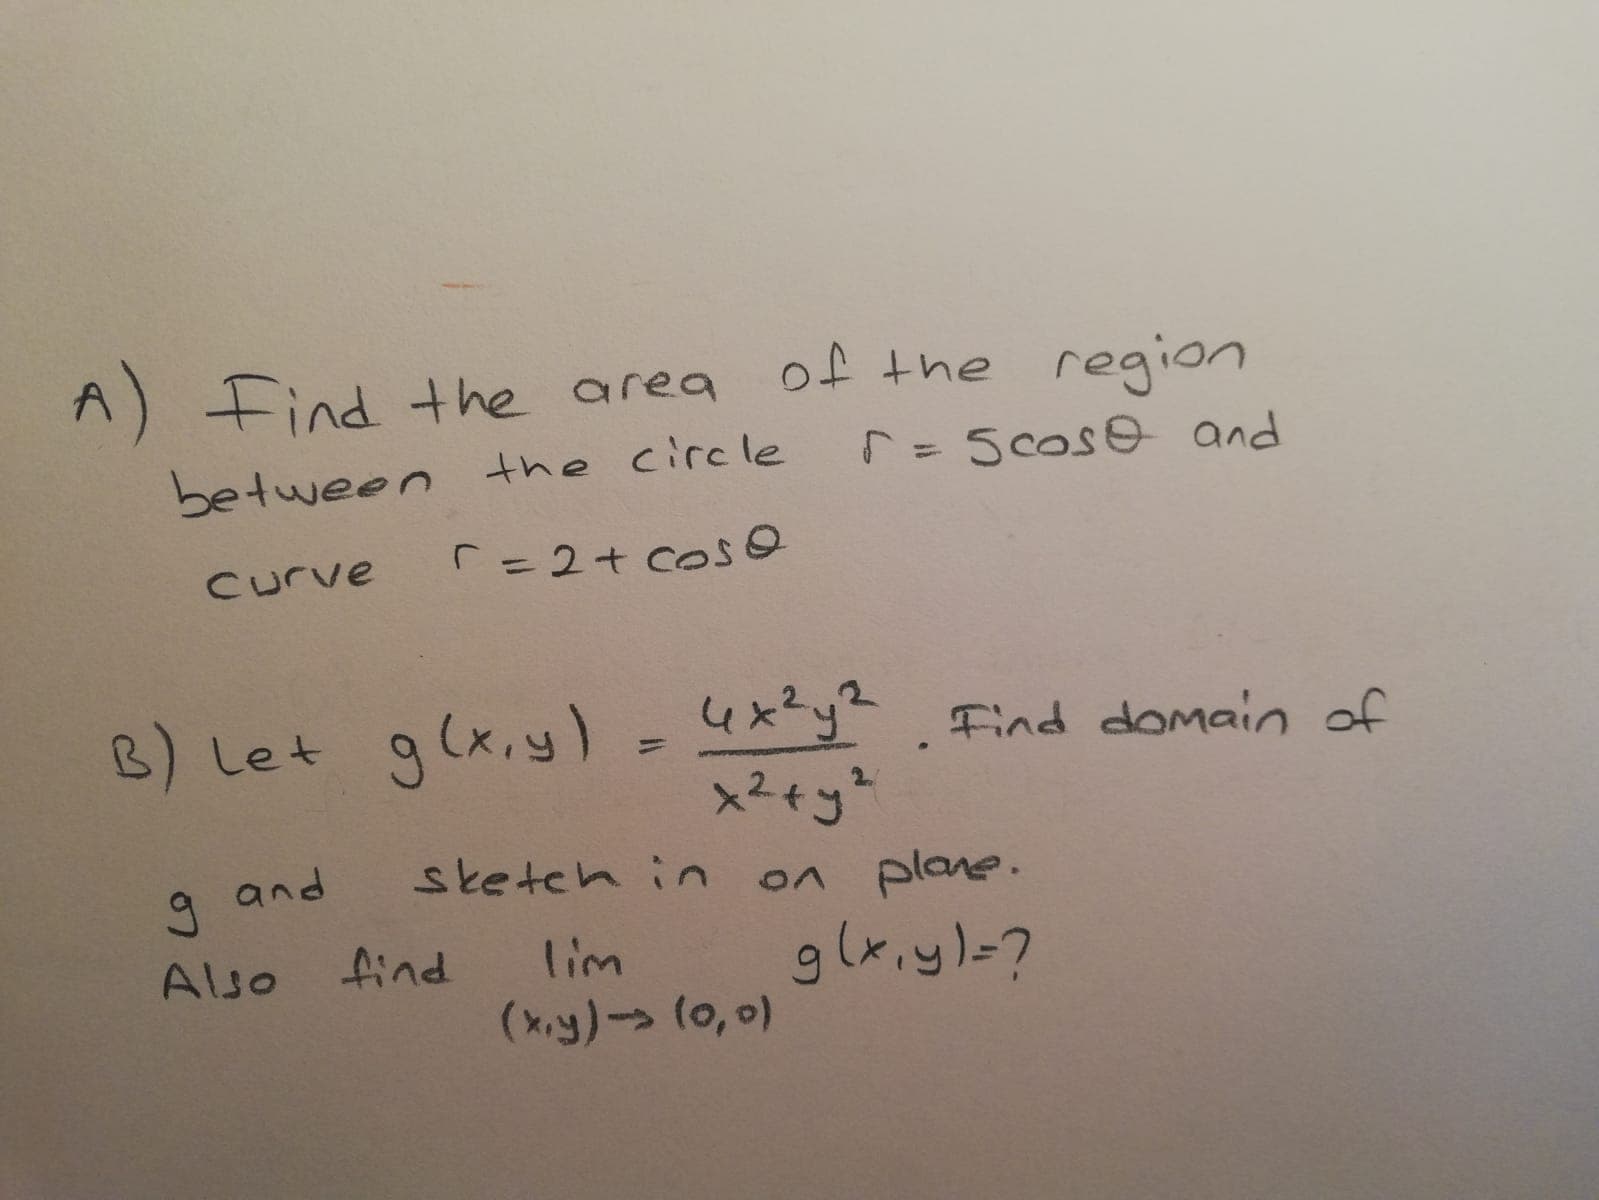 A) Find the area of the region
between the circle r = 5cosθ and
curve r = 2 + cosθ
B) Let g(x,y) = 4x²y² / x²+y² . Find domain of
g and sketch in on plane.
Also find lim g(x,y)=?
(x,y)→(0,0)